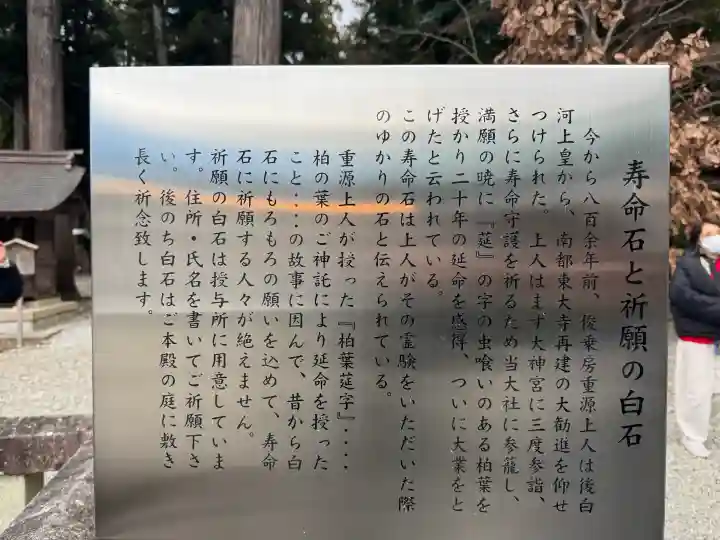 寿命石と祈願の白石
今から八百余年前、俊乗房重源上人は後白
河上皇から、南都東大寺再建の大勧進を仰せ
つけられた。上人はまず大神宮に三度参詣、
さらに寿命守護を祈るため当大社に参籠し、
満願の暁に『莚』の字の虫喰いのある柏葉を
授かり二十年の延命を感得、ついに大業をと
げたと云われている。
この寿命石は上人がその霊験をいただいた際
のゆかりの石と伝えられている。
重源上人が授った『柏葉莚字』‥‥
柏の葉のご神託により延命を授った
こと‥‥の故事に因んで、昔から白
石にもろもろの願いを込めて、寿命
石に祈願する人々が絶えません。
祈願の白石は授与所に用意していま
す。住所・氏名を書いてご祈願下さ
い。後のち白石はご本殿の庭に敷き
長く祈念致します。